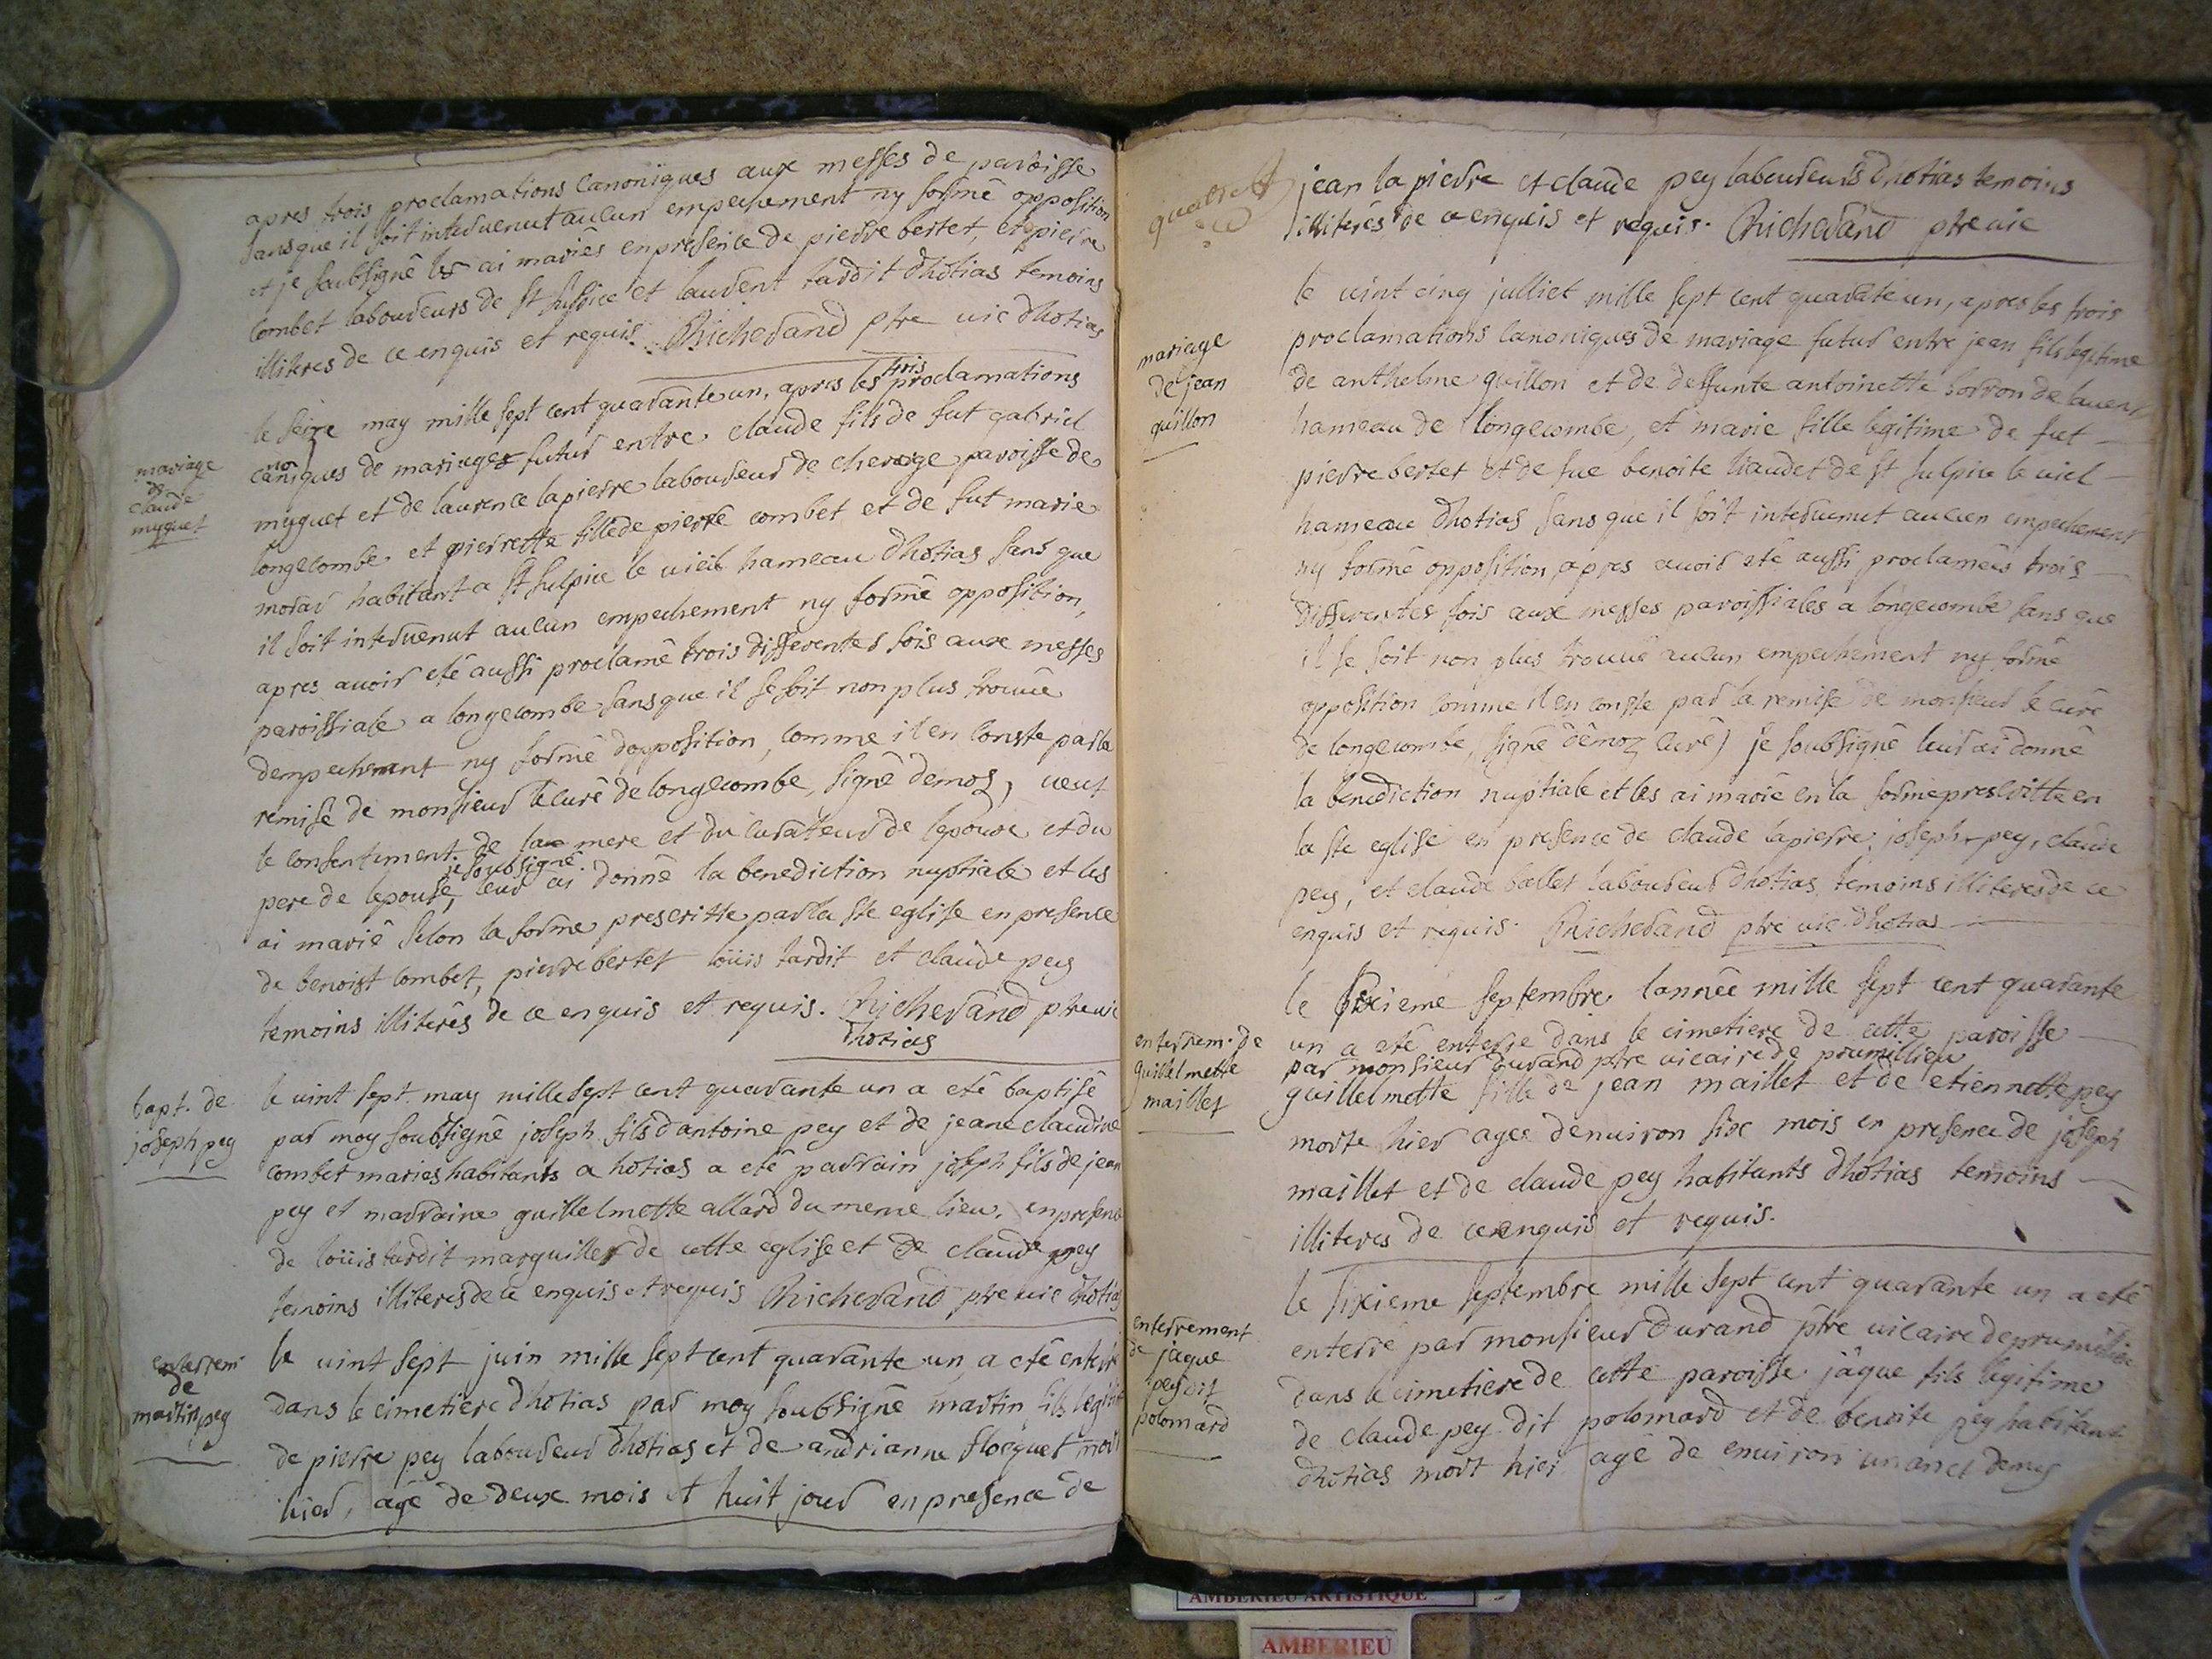 apres trois proclamations canoniques aux messes de paroisse
sans que il soit intervenut aucun empechement ny formé opposition
et je soubsigné les ai mariés en presence de pierre bertet, et pierre
combet laboureurs de st sulpice et laurent tardit dhotias temoins
illiteres de ce enquis et requis. Richerand ptre vic dhotias
mariage
de
claude
myguet
le seize may mille sept cent quarante un, apres les trois proclamations
canoniques de mariages futur entre claude fils de fut gabriel
myguet et de laurence lapierre laboureur de cheraige paroisse de
longecombe et pierrette fille de pierre combet et de fut marie
morar habitant a st sulpice le vieil hameau dhotias sans que
il soit intervenut aucun empechement ny formé opposition,
apres avoir eté aussi proclamé trois differentes fois aux messes
paroissiale a longecombe sans que il se soit non plus trouvé
dempechement ny formé dopposition, comme il en conste par la
remise de monsieur le curé de longecombe, signé demoz, veut
le consentiment de la mere et du curateur de lepoux et du
pere de lepouse, je soubsigné leur ai donné la benediction nuptiale et les
ai marié selon la forme prescritte par la ste eglise en presence
de benoist combet, pierre bertet loüis tardit et claude pey
temoins illiterés de ce enquis et requis. Richerand ptre vic
dhotias
bapt. de
joseph pey
le vint sept may mille sept cent quarante un a eté baptisé
par moy soubsigné joseph fils dantoine pey et de jeane claudine
combet maries habitants a hotias a eté parrain joseph fils de jean
pey et marraine guillelmette allard du meme lieu, en presence
de loüis tardit marguiller de cette eglise et de claude pey
temoins illiteres de ce enquis et requis Richerand ptre vic dhotias
enterrem
de
martin pey
le vint sept juin mille sept cent quarante un, a eté enterré
dans le cimetiere dhotias par moy soubsigné martin fils legitime
de pierre pey laboureur dhotias et de andrianne floquet mort
hier, agé de deux mois et huit jour en presence de
jean la pierre et claude pey laboureurs dhotias temoins
illiterés de ce enquis et requis. Richerand ptre vic
mariage
de jean
guillon
le vint cinq julliet mille sept cent quarate un, apres les trois
proclamations canoniques de mariage futur entre jean fils legitime
de anthelme guillon et de deffunte antoinette
hameau de longecombe, et marie fille legitime de fut
pierre bertet et de fue benoite de st sulpice le viel
hameau dhotias sans que il soit intervenut aucun empechement
ny formé opposition apres avoir eté aussi proclamées trois
differentes fois aux messes paroissiales a longecombe sans que
il se soit non plus trouvé aucun empechement ny formé
opposition comme il en conste par la remise de monsieur le curé
de longecombe, signé demoz curé) je soubsigné leur ai donné
la benediction nuptiale et les ai marié en la forme prescritte en
la ste eglise en presence de claude lapierre, joseph pey, claude
pey, et claude ballet laboureur dhotias temoins illiteres de ce
enquis et requis. Richerand ptre vic dhotias
enterrem. de
guillelmette
maillet
le sixieme septembre lannée mille sept cent quarante
un a eté enterré dans le cimetiere de cette paroisse
par monsieur durand ptre vicaire de prumillieu
guillelmette fille de jean maillet et de etiennette pey
morte hier agee denviron six mois en presence de joseph
maillet et de claude pey habitants dhotias temoins
illiteres de ce enquis et requis.
enterrement
de jaque
pey dit
polomard
le sixieme septembre mille sept cent quarante un a eté
enterré par monsieur durand ptre vicaire de prumillieu
dans le cimetiere de cette paroisse jâque fils legitime
de claude pey dit polomard et de benoite pey habitant
dhotias mort hier agé de environ un an et demy
AMBERIEU ARTISTIQUE
AMBERIEU